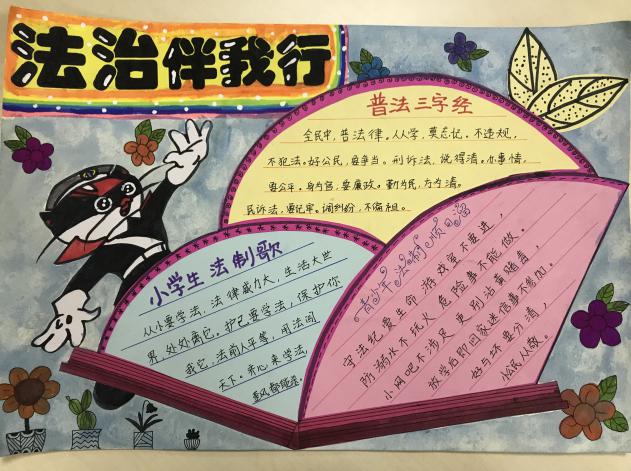 法治伴我行
普法三字经
全民中，普法律。人人学，莫忘记。不违规，
不犯法。好公民，要争当。刑诉法，说得清。办事情，
要公平。身为官，要廉政。勤为民，方为清。
民诉法，要记牢。调纠纷，不偏袒。
小学生法制歌
从小要学法，法律威力大，生活大世
界，处处离它。护己要学法，保护你
我它，法前人平等，用法闯
天下。齐心来学法，
青少年法制顺口溜
守法纪爱生命 游戏室不要进，
防溺水不玩火 危险事不能做。
小网吧不涉足 更别沾黄赌毒，
放学后即回家 迷信事不参加。
好与坏要分清，